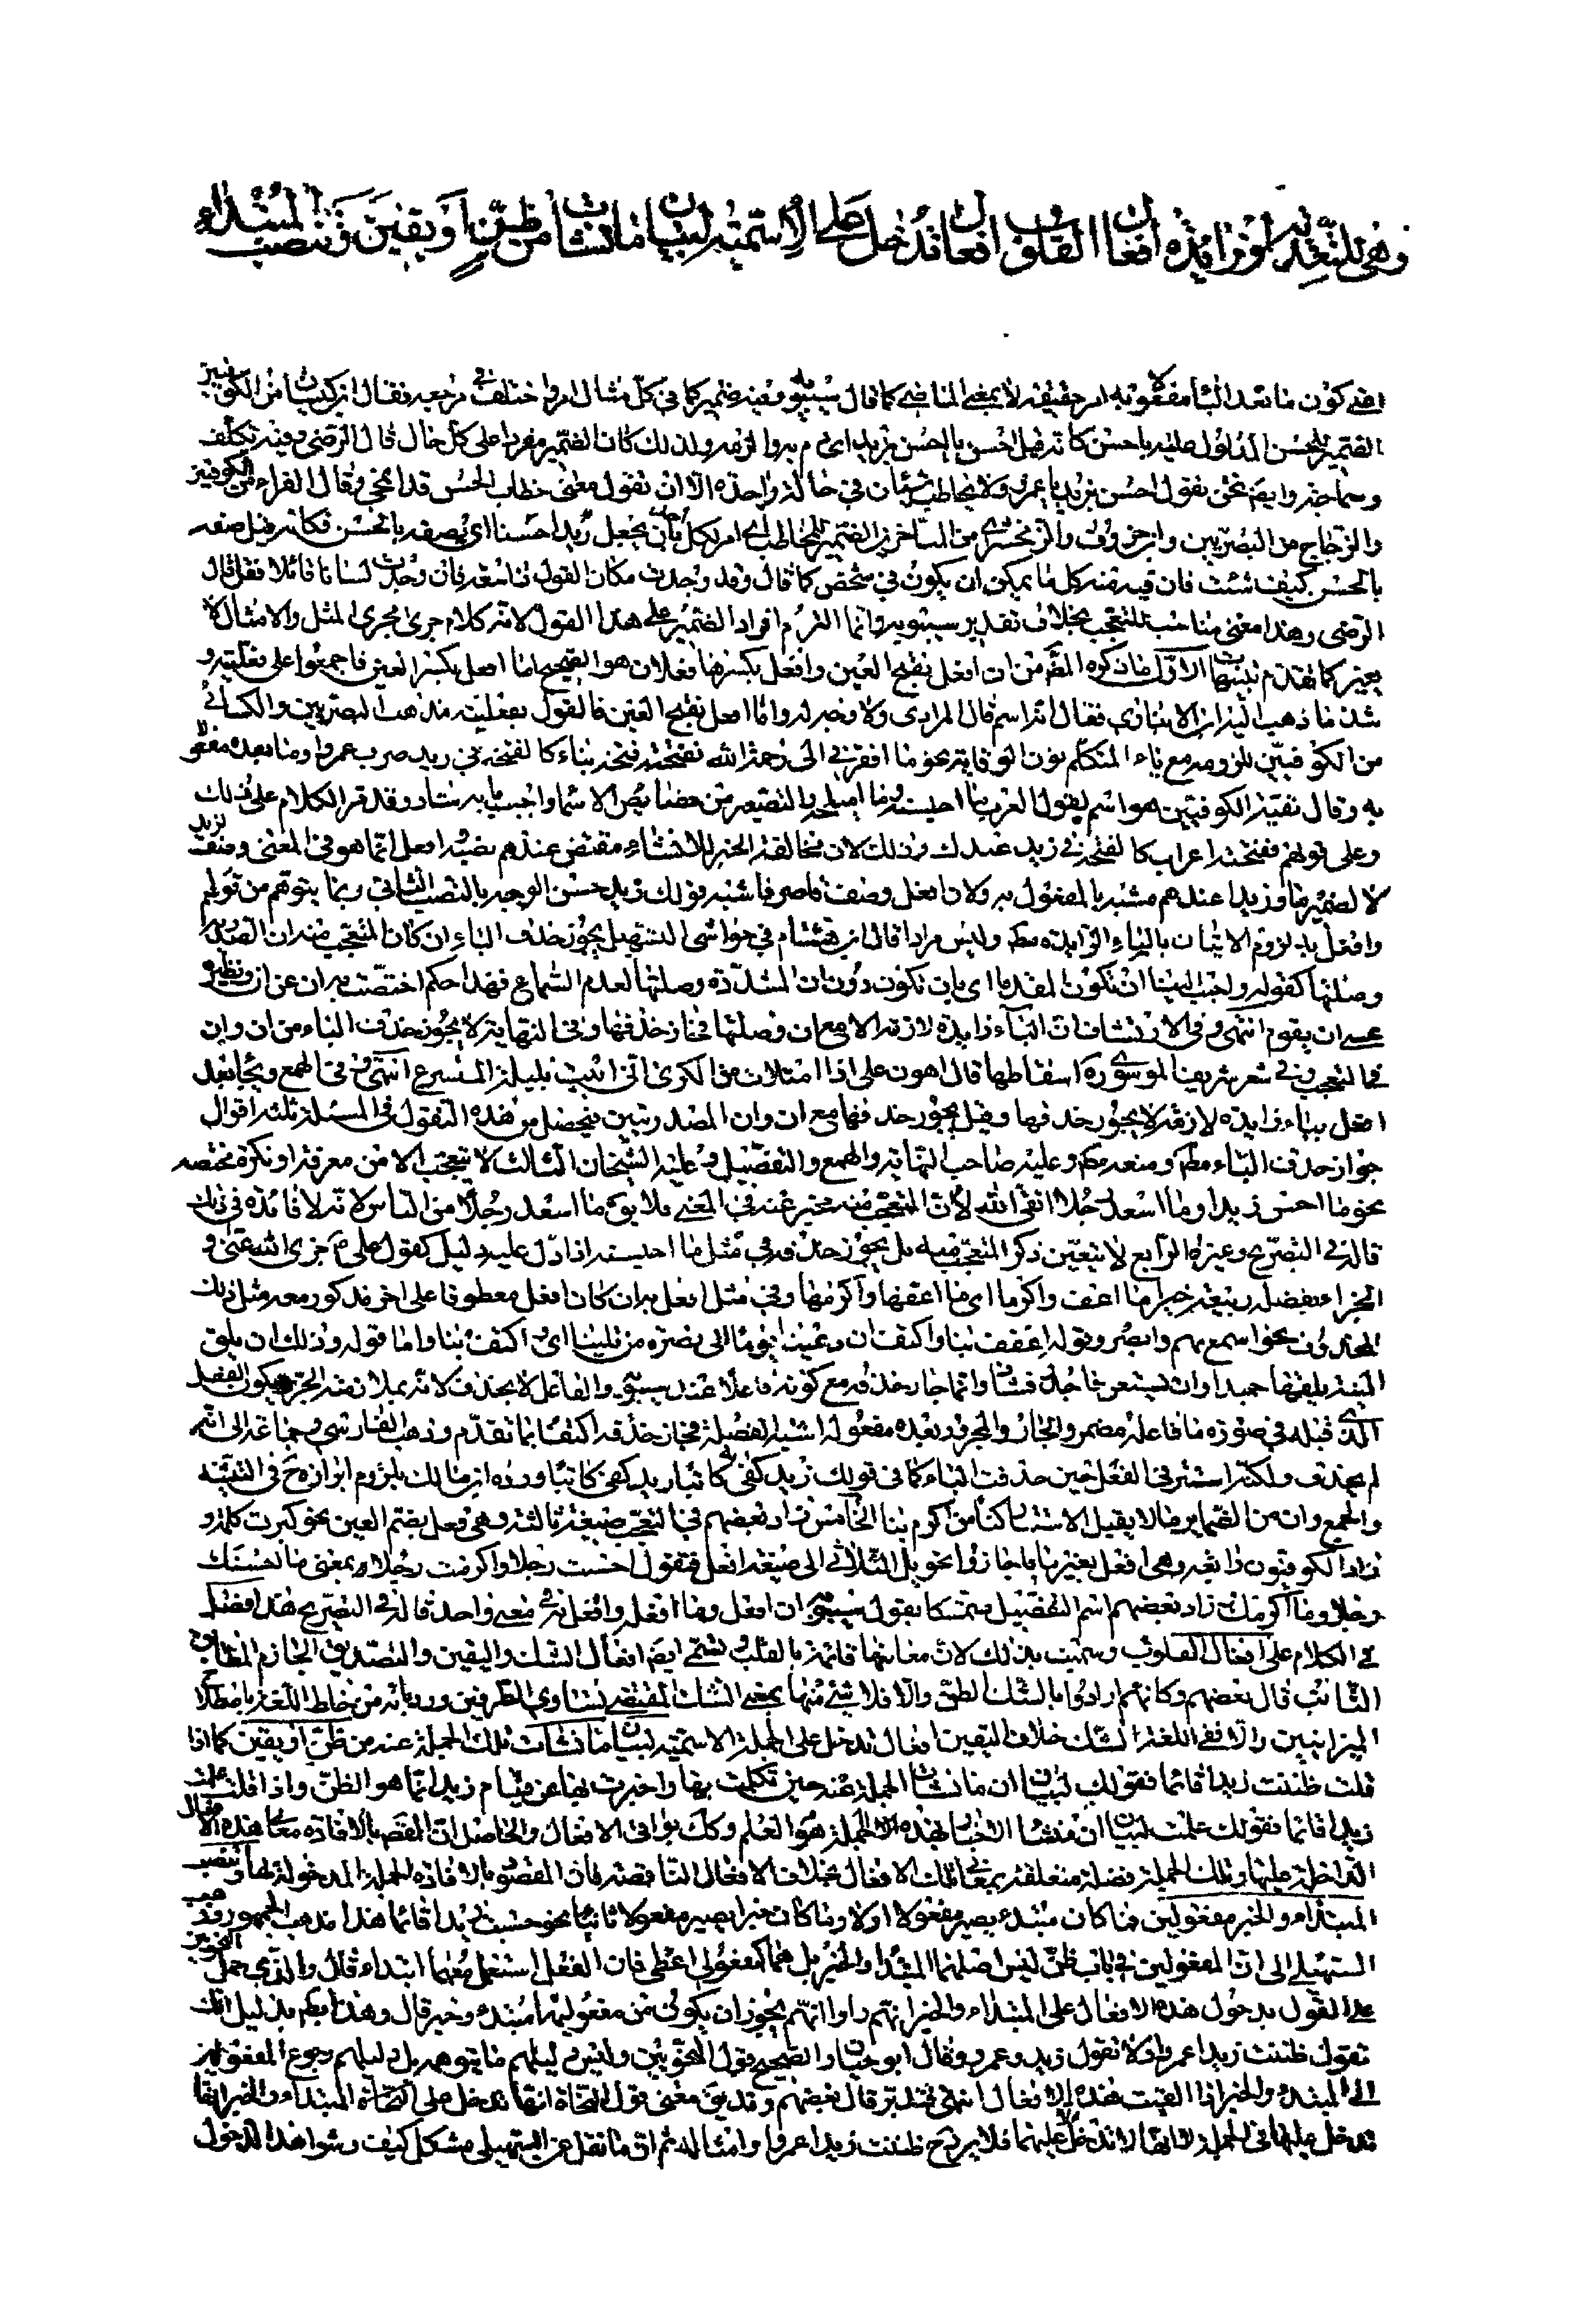 وهي للتعدية او زايدة افعال القلوب افعال تدخل على الاسمية لبيان ما نشات من ظن او يقين وتنصب المبتداء
اعني كون ما بعد الباء مفعولا به امر حقيقة لا بمعنى الماضي كما قال سيبويه وفيه ضمير كما في كل مثال امر واختلف في مرجعه فقال ابن كيسان من الكوفيين
الضمير للحسن المدلول عليه باحسن كانه قيل احسن يا حسن بزيد اي دم به والزمه ولذلك كان الضمير مفردا على كل حال قال الرضي وفيه تكلف
وسماجة وايضا نحن نقول احسن بزيد يا عمرو ولا يخاطب شيئان في حالة واحدة الا ان نقول معنى خطاب الحسن قد انمحى وقال الفراء من الكوفيين
والزجاج من البصريين وابن خروف والزمخشري من المتاخرين الضمير للمخاطب اي امر لكل احد بان يجعل زيدا حسنا اي يصفه بالحسن فكانه قيل صفه
بالحسن كيف شئت فان فيه منه كل ما يمكن ان يكون في شخص كما قال وقد وجدت مكان القول ذا سعة فان وجدت لسانا قائلا فقل قال
الرضي وهذا معنى مناسب للتعجب بخلاف تقدير سيبويه وانما التزم افراد الضمير على هذا القول لانه كلام جرى مجرى المثل والامثال لا
يغير كما تقدم تنبيهات الاول ما ذكره المصـ من ان افعل بفتح العين وافعل بكسرها فعلان هو الصحيح اما افعل بكسر العين فاجمعوا على فعليته و
شذ ما ذهب اليه ابن الانباري فقال انه اسم قال المرادي ولا وجه له واما افعل بفتح العين فالقول بفعليته مذهب البصريين والكسائي
من الكوفيين للزومه مع ياء المتكلم نون الوقاية نحو ما افقرني الى رحمة الله ففتحته فتحة بناء كالفتحة في زيد ضرب عمروا وما بعده مفعول
به وقال بقية الكوفيين هو اسم لقول العرب ما احيسنه وما اميلحه والتصغير من خصايص الاسماء واجيب بانه شاذ وقد قرر الكلام على ذلك
وعلى قولهم ففتحته اعراب كالفتحة في زيد عندك وذلك لان مخالفة الخبر للانشاء مقتض عندهم نصبه وافعل انما هو في المعنى وصف لزيد
لا لضمير ما وزيدا عندهم مشبه بالمفعول به ولان افعل وصف قاصر فاشبه قولك زيد حسن الوجه بالنصب الثاني ربما يتوهم من قولهم
وافعل به لزوم الاتيان بالباء الزايدة مطـ وليس مرادا قال ابن هشام في حواشي التسهيل يجوز حذف الباء ان كان المتعجب منه ان المصدرية
وصلتها كقوله واحبب الينا ان تكون المقدما اي بان تكون دون ان المشددة وصلتها لعدم السماع فهذا حكم اختصت به ان عن ان ونظيره
عسى ان يقوم انتهى وفي الارتشاف ان الباء زايدة لازمة الا مع ان وصلتها فجاز حذفها وفي النهاية لا يجوز حذف الباء من ان وان
في التعجب وفي شعر شريف الموسوي اسقاطها قال اهون علي اذا امتلات من الكرى اني ابيت بليلة الملسوع انتهى وفي الهمع ويجاء بعد
افعل بباء زايدة لازمة لا يجوز حذفها وقيل يجوز حذفها مع ان وان المصدريتين فيحصل من هذه النقول في المسئلة ثلثة اقوال
جواز حذف الباء مطـ ومنعه مطـ وعليه صاحب النهاية والهمع والتفصيل وعليه الشيخان الثالث لا يتعجب الا من معرفة او نكرة مختصة
نحو ما احسن زيدا وما اسعد رجلا اتقى الله لان المتعجب منه مخبر عنه في المعنى فلا يق ما اسعد رجلا من الناس لانه لا فائدة في ذلك
قاله في التصريح وغيره الرابع لا يتعين ذكر المتعجب منه بل يجوز حذفه في مثل ما احيسنه اذا دل عليه دليل كقول علي ع جزى الله عني و
الجزاء بفضله ربيعة خيرا ما اعف واكرما اي ما اعفها واكرمها وفي مثل افعل به ان كان افعل معطوفا على اخر مذكور معه مثل ذلك
المحذوف نحو اسمع بهم وابصر وقوله اعفف بنا واكفف ان دعينا يوما الى نصرة من يلينا اي اكفف بنا واما قوله فذلك ان يلق
المنية يلقها حميدا وان يستغن يوما فاجدر فشاذ وانما جاز حذفه مع كونه فاعلا عند سيبويه والفاعل لا يحذف لانه بملازمته الجر وكون الفعل
الذي قبله في صورة ما فاعله مضمر والجار والمجرور بعده مفعوله اشبه الفضلة فجاز حذفه اكتفاء بما تقدم وذهب الفارسي وجماعة الى انه
لم يحذف ولكنه استتر في الفعل حين حذفت الباء كما في قولك زيد كفى به كاتبا زيد كفى كاتبا ورده ابن مالك بلزوم ابرازه ح في التثنية
والجمع وان من الضماير ما لا يقبل الاستتار كنا من اكرم بنا الخامس زاد بعضهم في التعجب صيغة ثالثة وهي فعل بضم العين نحو كبرت كلمة و
زاد الكوفيون رابعه وهي افعل بغير ما فاجازوا تحويل الثلاثي الى صيغة افعل فتقول احسنت رجلا واكرمت رجلا بمعنى ما احسنك
رجلا وما اكرمك وزاد بعضهم اسم التفضيل متمسكا بقول سيبويه ان افعل وما افعل وافعل به في معنى واحد قاله في التصريح هذا فصل
في الكلام على افعال القلوب وسميت بذلك لان معانيها قائمة بالقلب وتسمى ايضا افعال الشك واليقين والتصديق الجازم المطابق
الثابت قال بعضهم وكانهم ارادوا بالشك الظن والا فلا شئ منها بمعنى الشك المقتضي تساوي الطرفين ورد بانه من خلط اللغة باصطلاح
الميزانيين والا ففي اللغة الشك خلاف اليقين افعال تدخل على الجملة الاسمية لبيان ما نشات تلك الجملة عنه من ظن او يقين كما اذا
قلت ظننت زيدا قائما فقولك لبيان ان ما نشات الجملة عنه حين تكلمت بها واخبرت بها عن قيام زيد انما هو الظن واذا قلت علمت
زيدا قائما فقولك علمت لبيان ان منشا الاخبار بهذه الجملة هو العلم وكك بواقي الافعال والحاصل ان المقصـ بالافادة معاني هذه الافعال
الداخلة عليها وتلك الجملة فضلة متعلقة بمعاني تلك الافعال بخلاف الافعال الناقصة فان المقصود بالافادة الجملة المدخولة لها وتنصب
المبتداء والخبر مفعولين فما كان مبتدء يصير مفعولا اولا وما كان خبرا يصير مفعولا ثانيا نحو حسبت زيدا قائما هذا مذهب الجمهور وذهب
السهيلي الى ان المفعولين في باب ظن ليس اصلهما المبتدا والخبر بل هما كمفعولي اعطى فان الفعل استعمل معهما ابتداء قال والذي حمل النحويين
على القول بدخول هذه الافعال على المبتداء والخبر انهم راوا انهم يجوز ان يكون من مفعوليها مبتدء وخبر قال وهذا بط بدليل انك
تقول ظننت زيدا عمروا ولا تقول زيد وعمرو وقال ابو حيان والصحيح قول النحويين وليس دليلهم ما يتوهمه بل دليلهم رجوع المفعولين
الى المبتدء والخبر اذا القيت هذه الافعال انتهى فتدبر قال بعضهم وقد يق معنى قول النحاة انها تدخل على المبتداء والخبر انها
تدخل عليهما في الجملة لا انها لا تدخل الا عليهما فلا يرد ح ظننت زيدا عمروا وامثاله ثم ان ما نقل عن السهيلي مشكل كيف وشواهد الدخول